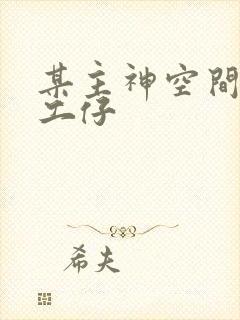 某主神空間
工仔
希夫